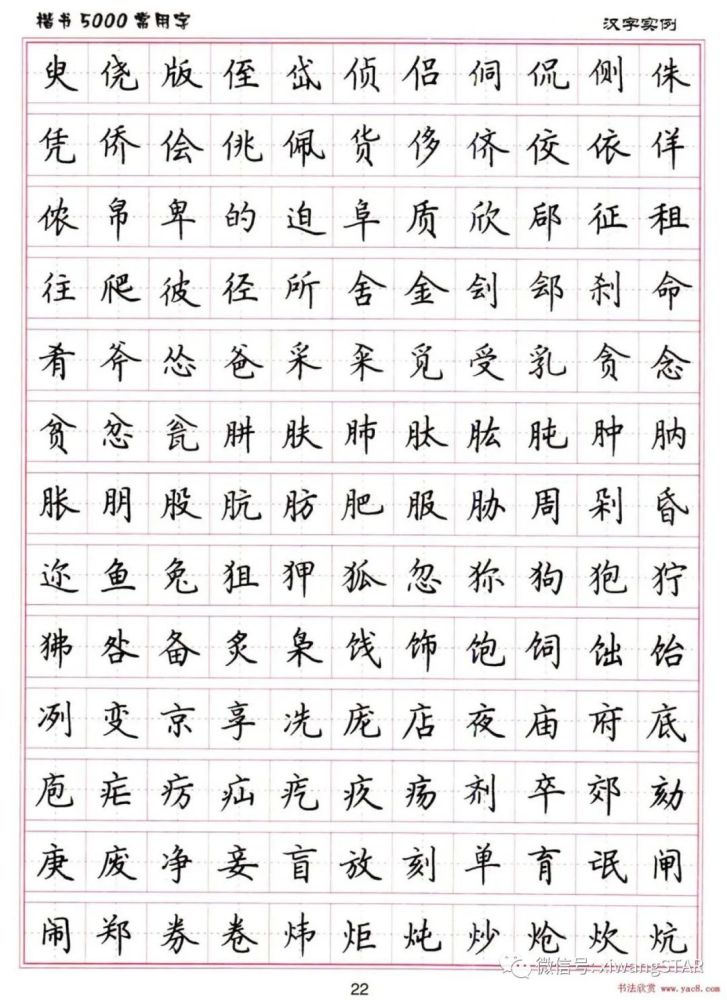 楷书5000常用字 汉字实例
臾 侥 版 侄 岱 侦 侣 侗 侃 侧 侏
凭 侨 侩 佻 佩 货 侈 侪 佼 依 佯
侬 帛 卑 的 迫 阜 质 欣 郈 征 租
往 爬 彼 径 所 舍 金 刽 郐 刹 命
肴 斧 怂 爸 采 籴 觅 受 乳 贪 念
贫 忿 瓮 肼 肤 肺 肽 肱 肫 肿 肭
胀 朋 股 肮 肪 肥 服 胁 周 剁 昏
迩 鱼 兔 狙 狎 狐 忽 狝 狗 狍 狞
狒 咎 备 炙 枭 饯 饰 饱 饲 饳 饴
冽 变 京 享 冼 庞 店 夜 庙 府 底
庖 疟 疠 疝 疙 疚 疡 剂 卒 郊 劾
庚 废 净 妾 盲 放 刻 单 育 氓 闸
闹 郑 券 卷 炜 炬 炖 炒 炝 炊 炕
微信号: xiwangSTAR
22
书法欣赏 www.yac8.com